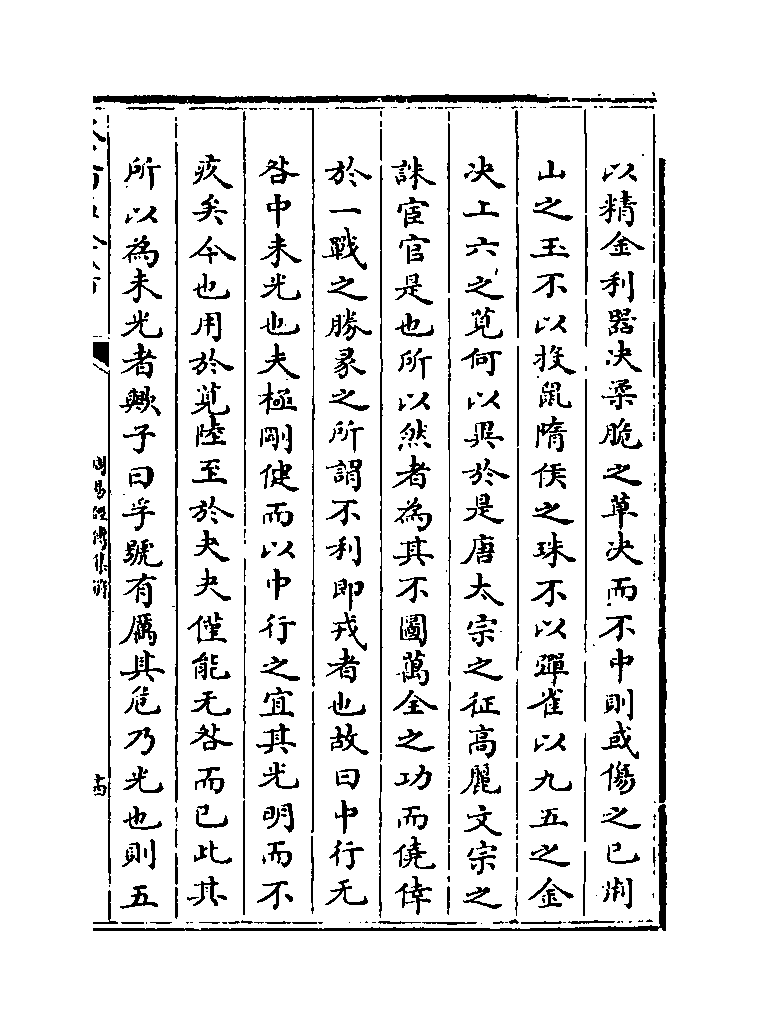 以精金利器决柔脆之草决而不中則或傷之已荆
山之玉不以投鼠隋侯之珠不以彈雀以九五之金
决上六之莧何以異於是唐太宗之征高麗文宗之
誅宦官是也所以然者為其不圖萬全之功而僥倖
於一戰之勝彖之所謂不利即戎者也故曰中行无
咎中未光也夫極剛健而以中行之宜其光明而不
疚矣今也用於莧陸至於夬夬僅能无咎而已此其
所以為未光者歟子曰孚號有厲其危乃光也則五
周易經傳集解
十四